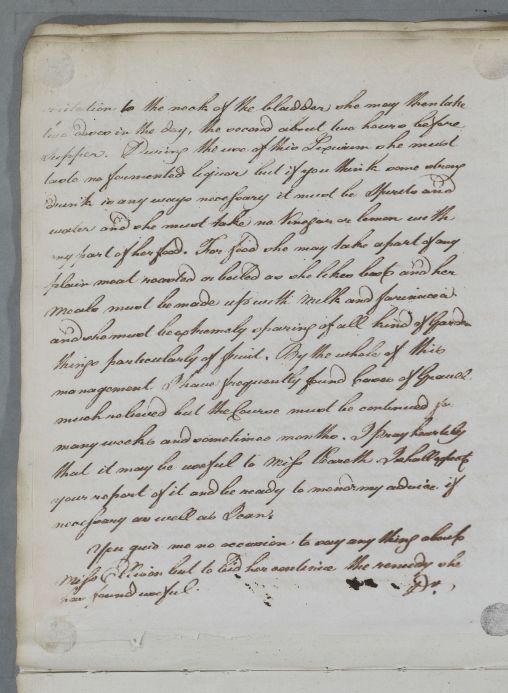 to the neck of the bladder she may then take
two doses in the day, the second about two hours before
Supper. During the use of this Lixivium she must
taste no fermented liquor but if you think some strong
drink is any ways necessary it must be Spirits and
water and she must take no Vinegar or lemon with
any part of her food. For food she may take a part of any
plain meat roasted or boiled as she likes best and her
meals must be made up with Milk and farinacea
and she must be extremely sparing of all kind of Garden
things particularly of fruit. By the whole of this
management I have frequently found Cases of Gravel
much relieved but the Course must be continued for
many weeks and sometimes months. I pray heartily
that it may be useful to Miss I shall expect
your report of it and be ready to mend my advice if
necessary as well as I can.
You give me no occasion to say any thing about
Miss but to bid her continue the remedy she
has found useful.